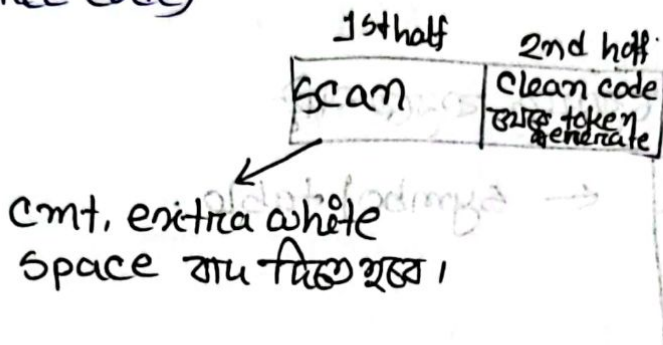 1st half
2nd half
Scan
Clean code
থেকে token
generate
cmt, extra white
space বাদ দিতে হবে।